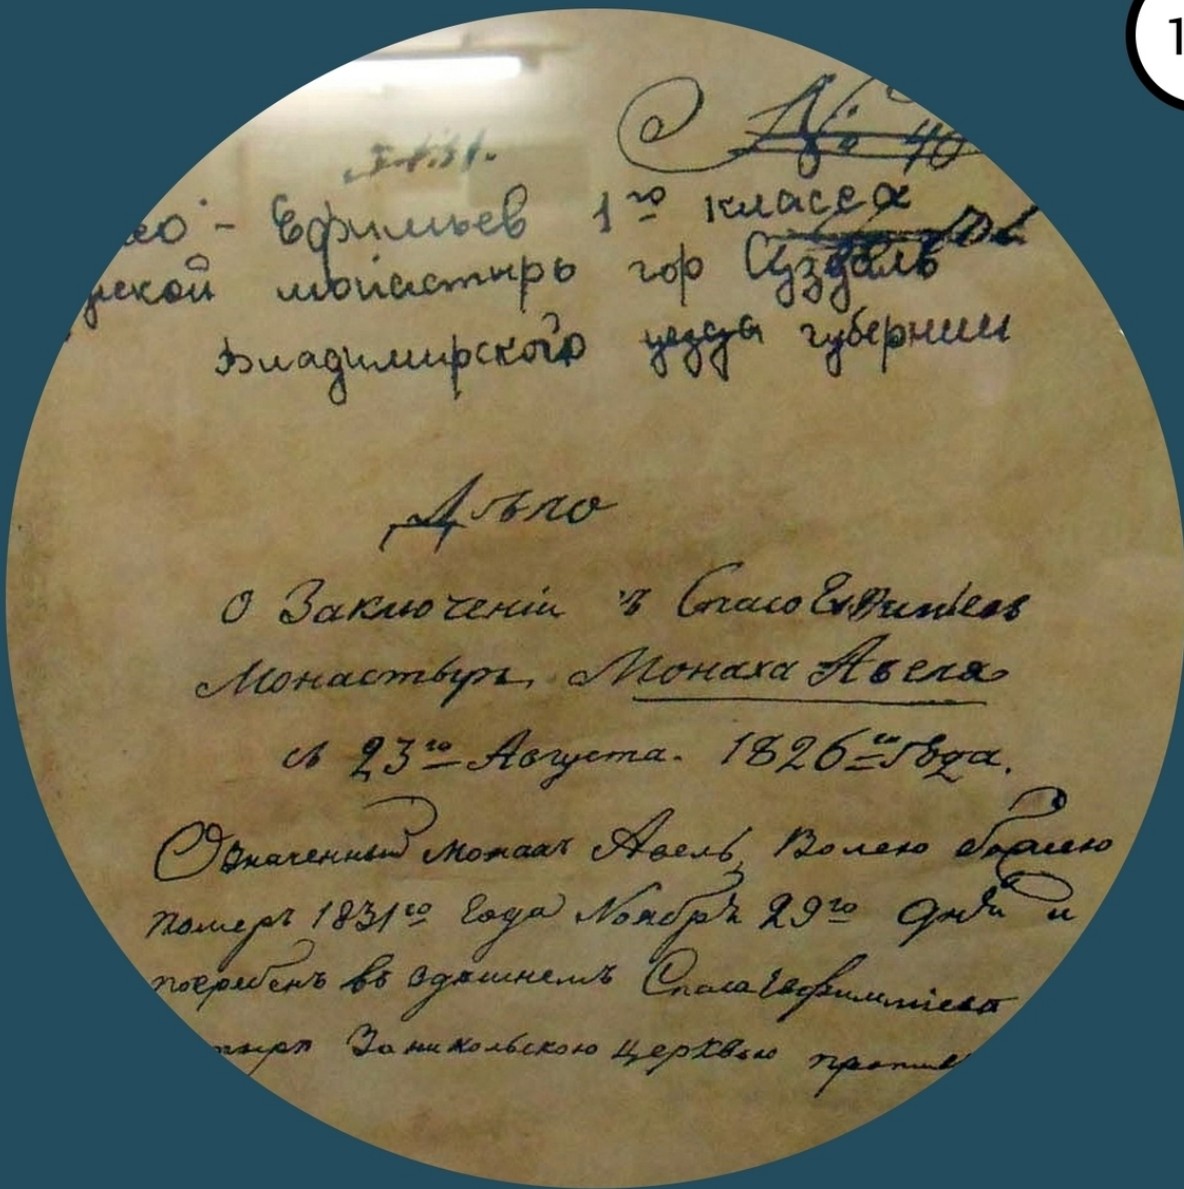 1
№ 40
Ефимьев 1го класса
монастырь гор Суздаль
Владимирского уезда губернии
Дѣло
О Заключенiи въ Спасо Евфимiевъ
Монастырь, Монаха Авеля
съ 23го Августа. 1826го Года.
Означенный монахъ Авель, Волею божiею
померъ 1831го Года Ноября 29го дня и
погребенъ въ здѣшнемъ Спаса Евфимiева
За никольскою церквью